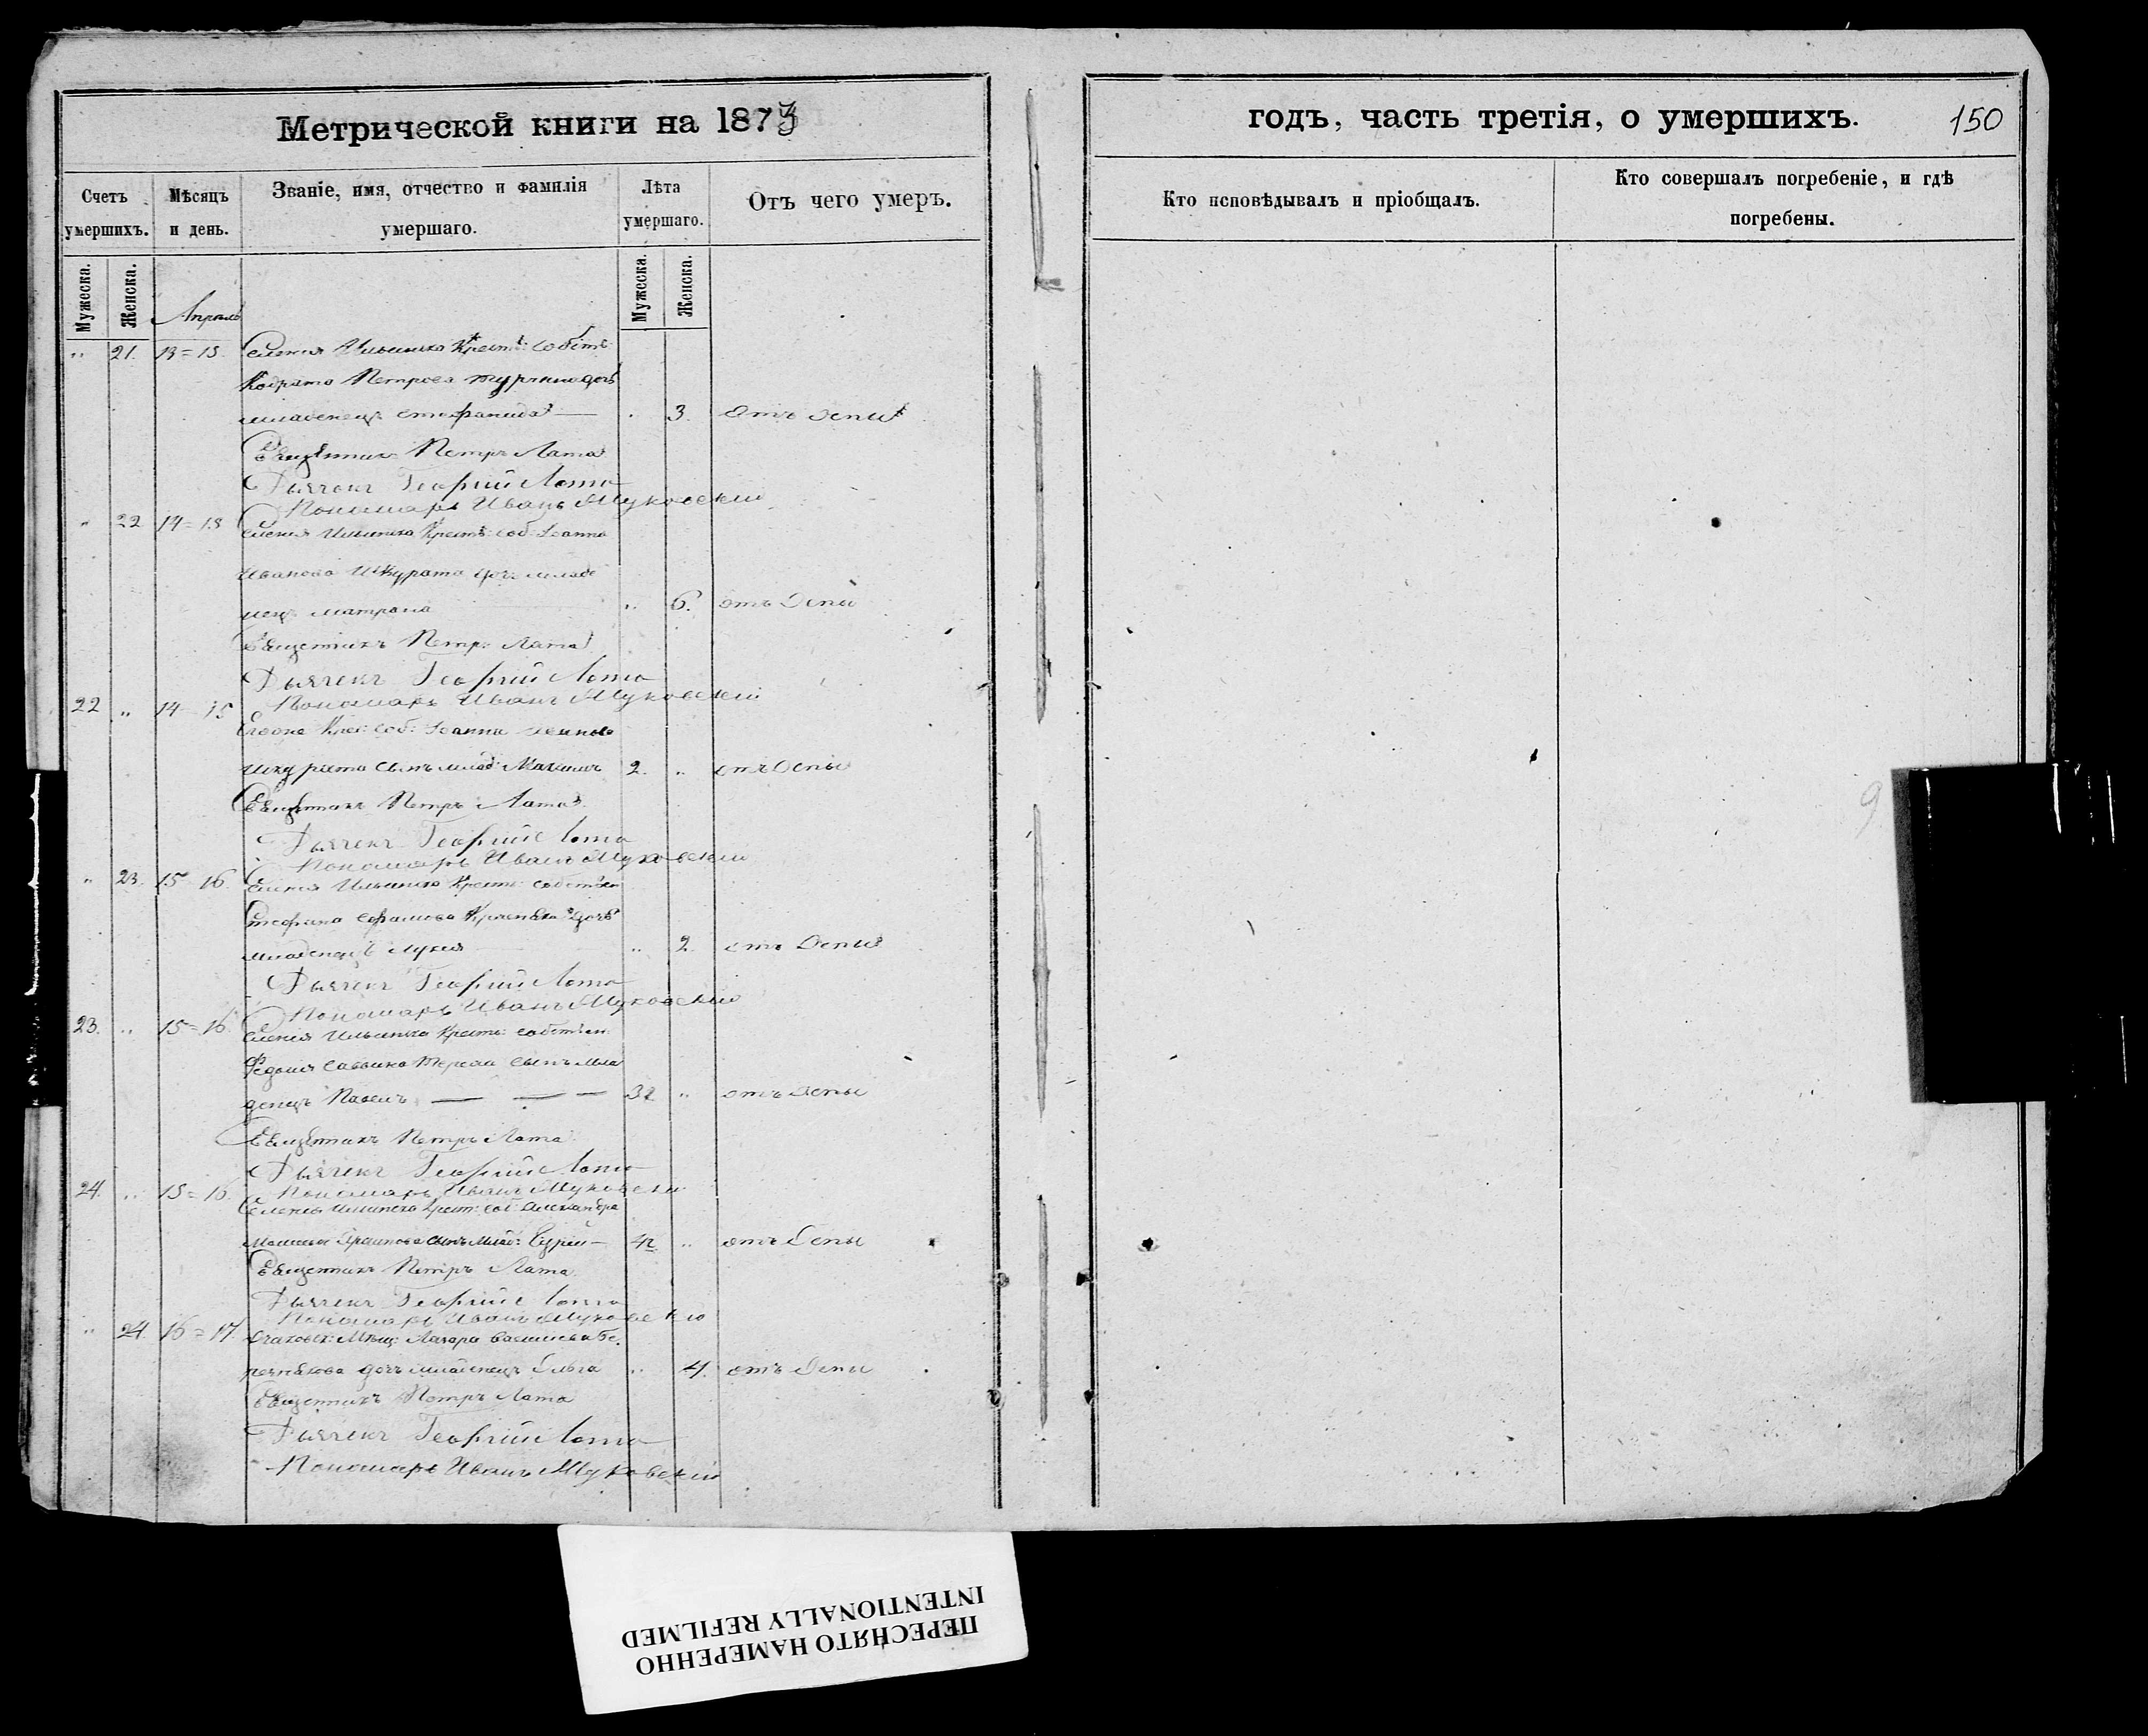 Метрической книги на 1873
годъ, часть третія, о умершихъ.
150
Счетъ умершихъ.
Мѣсяцъ и день.
Званіе, имя, отчество и фамилія умершаго.
Лѣта умершаго.
Отъ чего умеръ.
Кто исповѣдывалъ и пріобщалъ.
Кто совершалъ погребеніе, и гдѣ погребены.
Мужеска. Женска.
Мужеска. Женска.
Апрель
" 21. 13=15. Селенія Ильинка Крест: собств
Петрова дочь
младенецъ Стефанида 3. Отъ Оспы
Священникъ Петръ Лата
Дьячекъ Георгій Лата
Пономарь Иванъ Муковскій
" 22 14=15 Селенія Ильинка Крест: соб: Іоанна
Иванова Шкурата дочь младе
нецъ Матрона " 6. отъ Оспы
Священникъ Петръ Лата
Дьячекъ Георгій Лата
Пономарь Иванъ Муковскій
22 " 14 15 Крес: соб: Іоанна
Шкурата сынъ млад: 2. " отъ Оспы
Священникъ Петръ Лата
Дьячекъ Георгій Лата
Пономарь Иванъ Муковскій
" 23. 15 16. Селенія Ильинка Крест: собствен
Стефана дочь
младенецъ " 2. отъ Оспы
Дьячекъ Георгій Лата
Пономарь Иванъ Муковскій
23. " 15=16. Селенія Ильинка Крест: собствен
сынъ мла
денецъ Павелъ " отъ Оспы
Священникъ Петръ Лата
Дьячекъ Георгій Лата
Пономарь Иванъ Муковскій
24. " 15=16. Селенія Ильинка Крест: соб: Александра
сынъ млад: " отъ Оспы
Священникъ Петръ Лата
Дьячекъ Георгій Лата
Пономарь Иванъ Муковскій
" 24 16=17 Мѣщ: Лазаря
дочь младенецъ Ольга " 4. отъ Оспы
Священникъ Петръ Лата
Дьячекъ Георгій Лата
Пономарь Иванъ Муковскій
9
ПЕРЕСНЯТО НАМЕРЕННО
INTENTIONALLY REFILMED